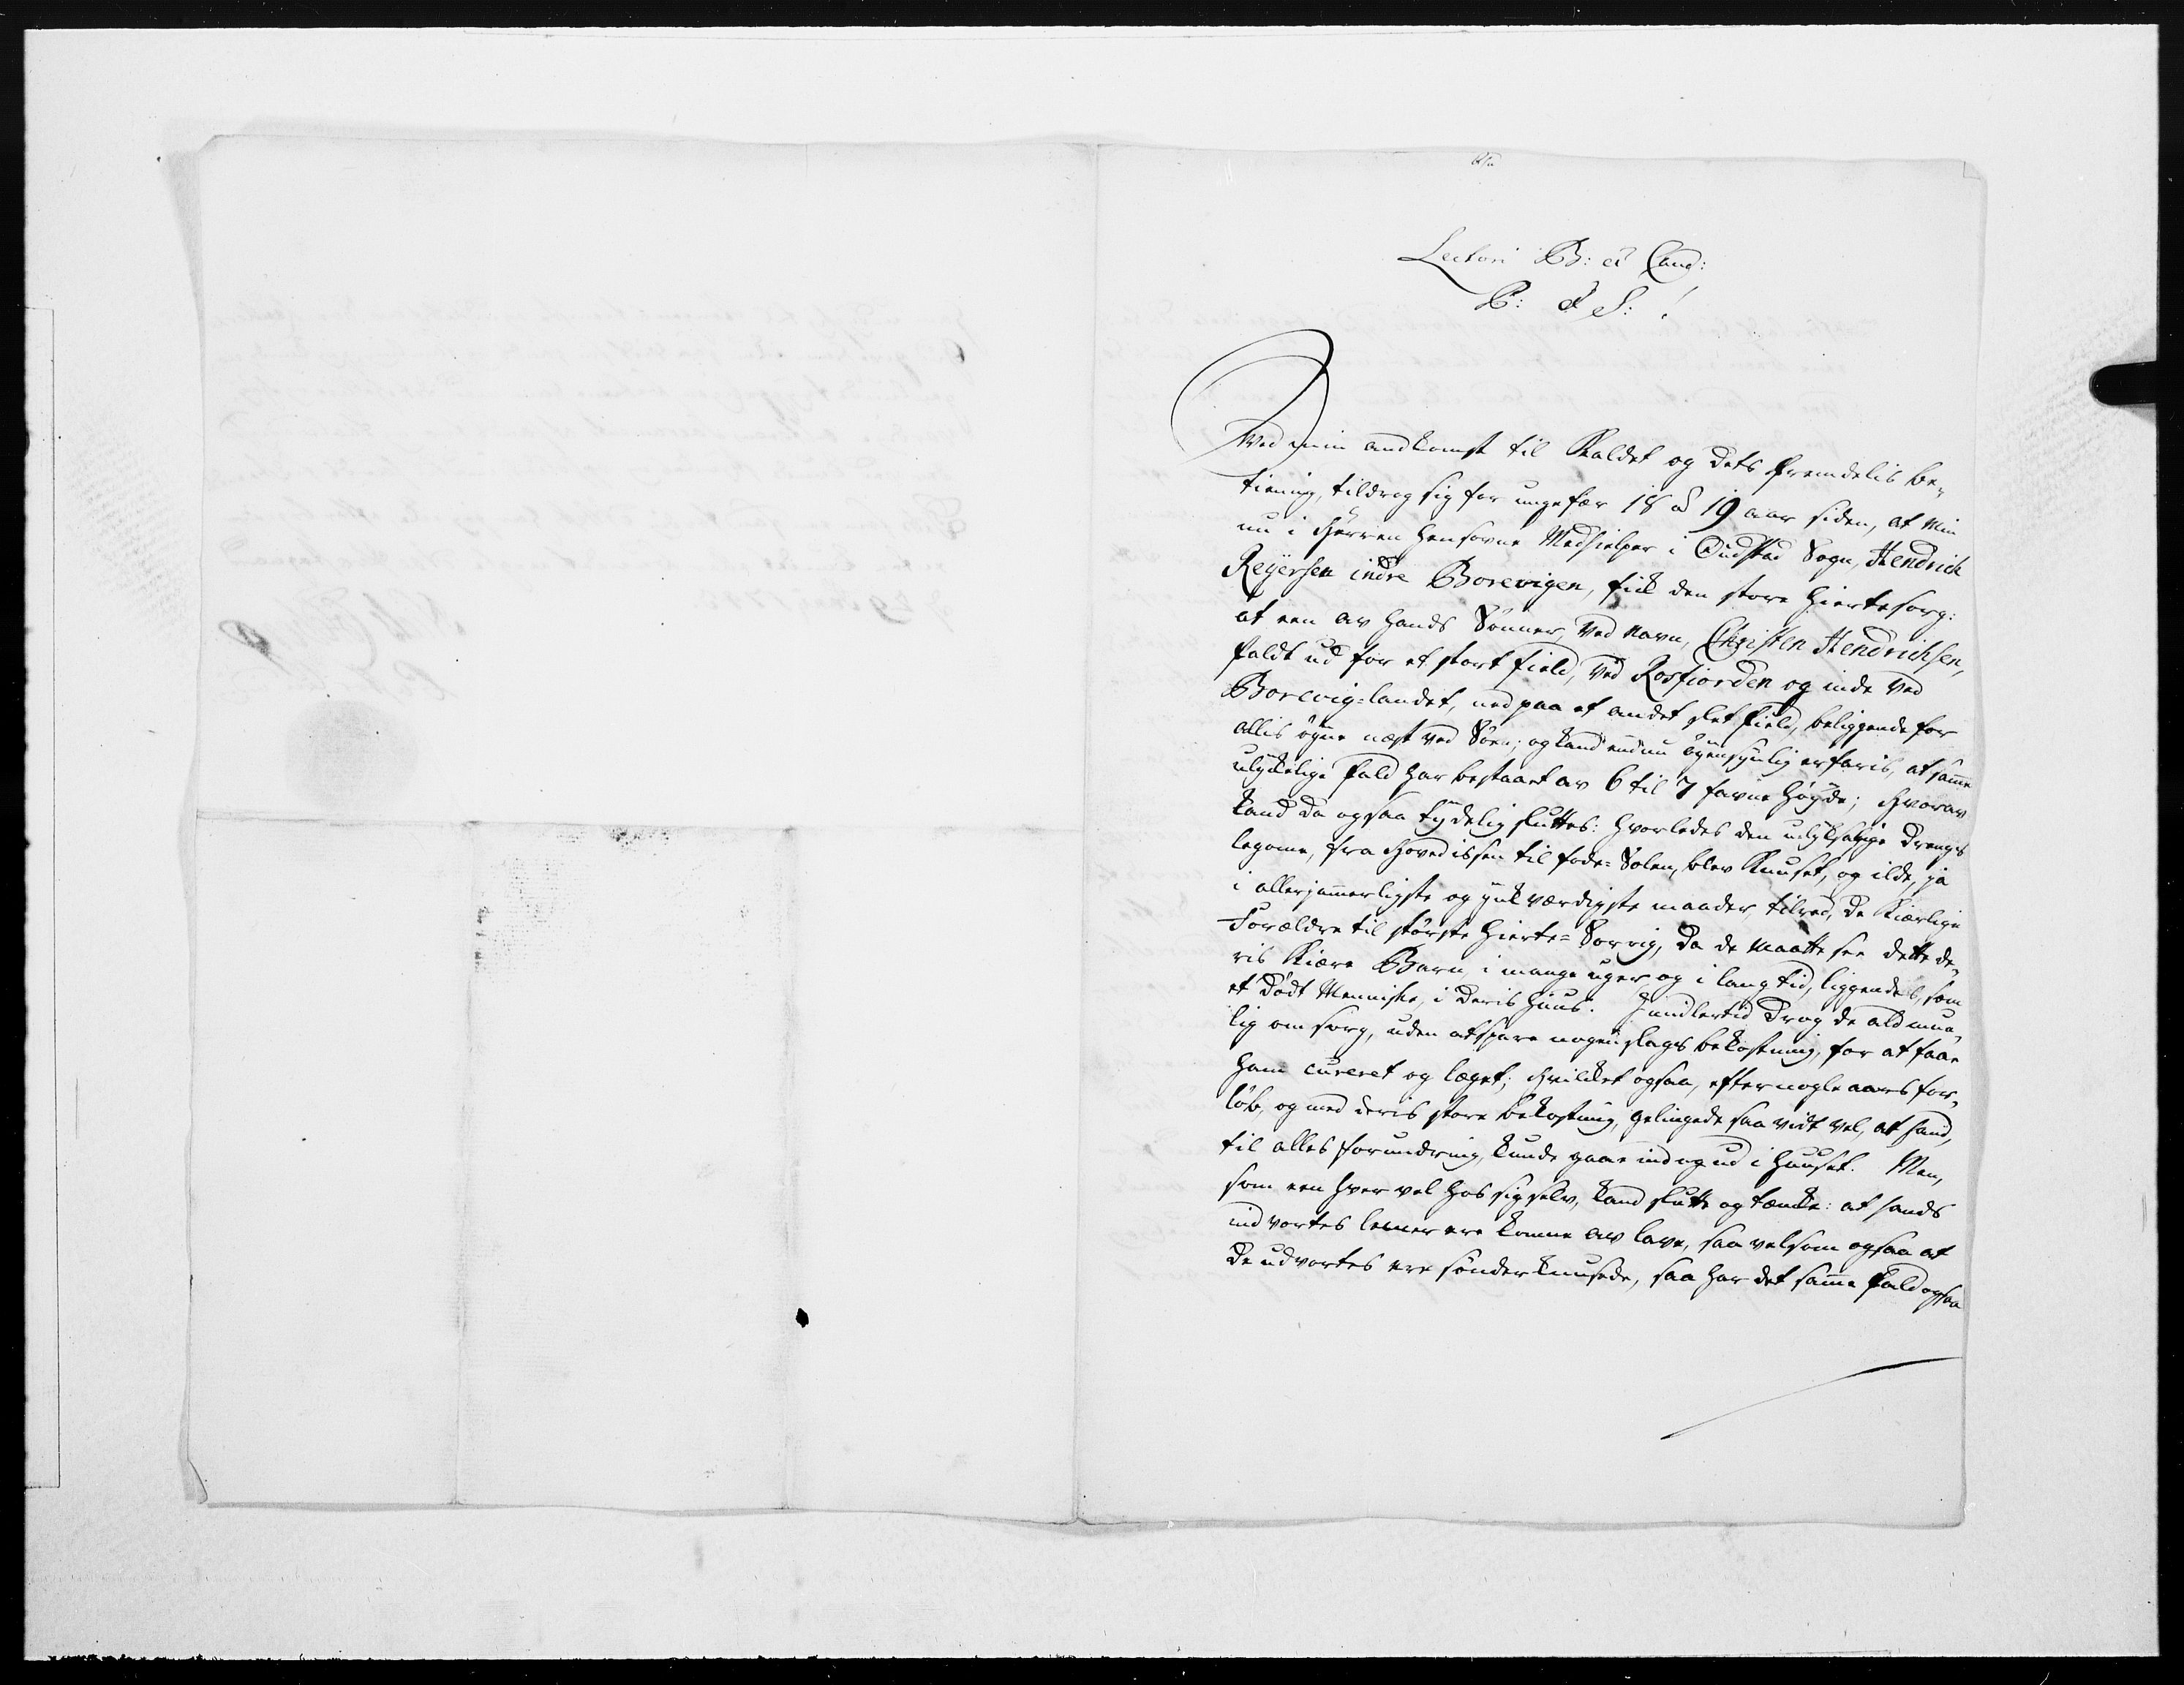 Lectori B: et Cand:
P: et S: !
Ved min andkomst til Kaldet og dets fremdelis be-
tiening, tildrog sig for ungefær 18 a 19 aar siden, at min
nu i Herren hensovne Medhielper i Oudstad Sogn, Hendrich
Reyersen indre Borevigen, fick den store Hiertesorg:
at een av hands Sönner, ved navn, Christen Hendrichsen,
faldt ud for et stort field, ved Rosfiorden og inde ved
Borevig-landet, ned paa et andet slet field, beliggende for
allis öyne næst ved Söen; og kand endnu öyensynlig erfaris, at samme
ulykelige fald har bestaaet av 6 til 7 favne höyde; hvorav
kand da ogsaa tydelig sluttes: hvorledes den ulyksalige Drengs
legome, fra Hovedissen til fode-Solen, blev knuset, og ilde, ja
i allerjammerligste og ynkværdigste maader, tilred, de kiærlige
Forældre til störste Hierte-Sorrig, da de maatte see dette de-
ris kiære Barn, i mange uger og i lang tid, liggendes, som
et dödt Menniske, i deris huus. Imidlertid drog de ald mue-
lig omsorg, uden at spare nogen slags bekostning, for at faae
ham cureret og læget; hvilket ogsaa, efter nogle aars for-
löb, og med deris store bekostning, gelingede saa vidt vel, at hand,
til alles forundring, kunde gaae ind og ud i Huuset. Men,
som een hver vel hos sig selv, kand slutte og tænke: at hands
indvortes lemer ere komne av lave, saa vel som ogsaa at
de udvortes ere sönderknusede, saa har det samme fald ogsaa